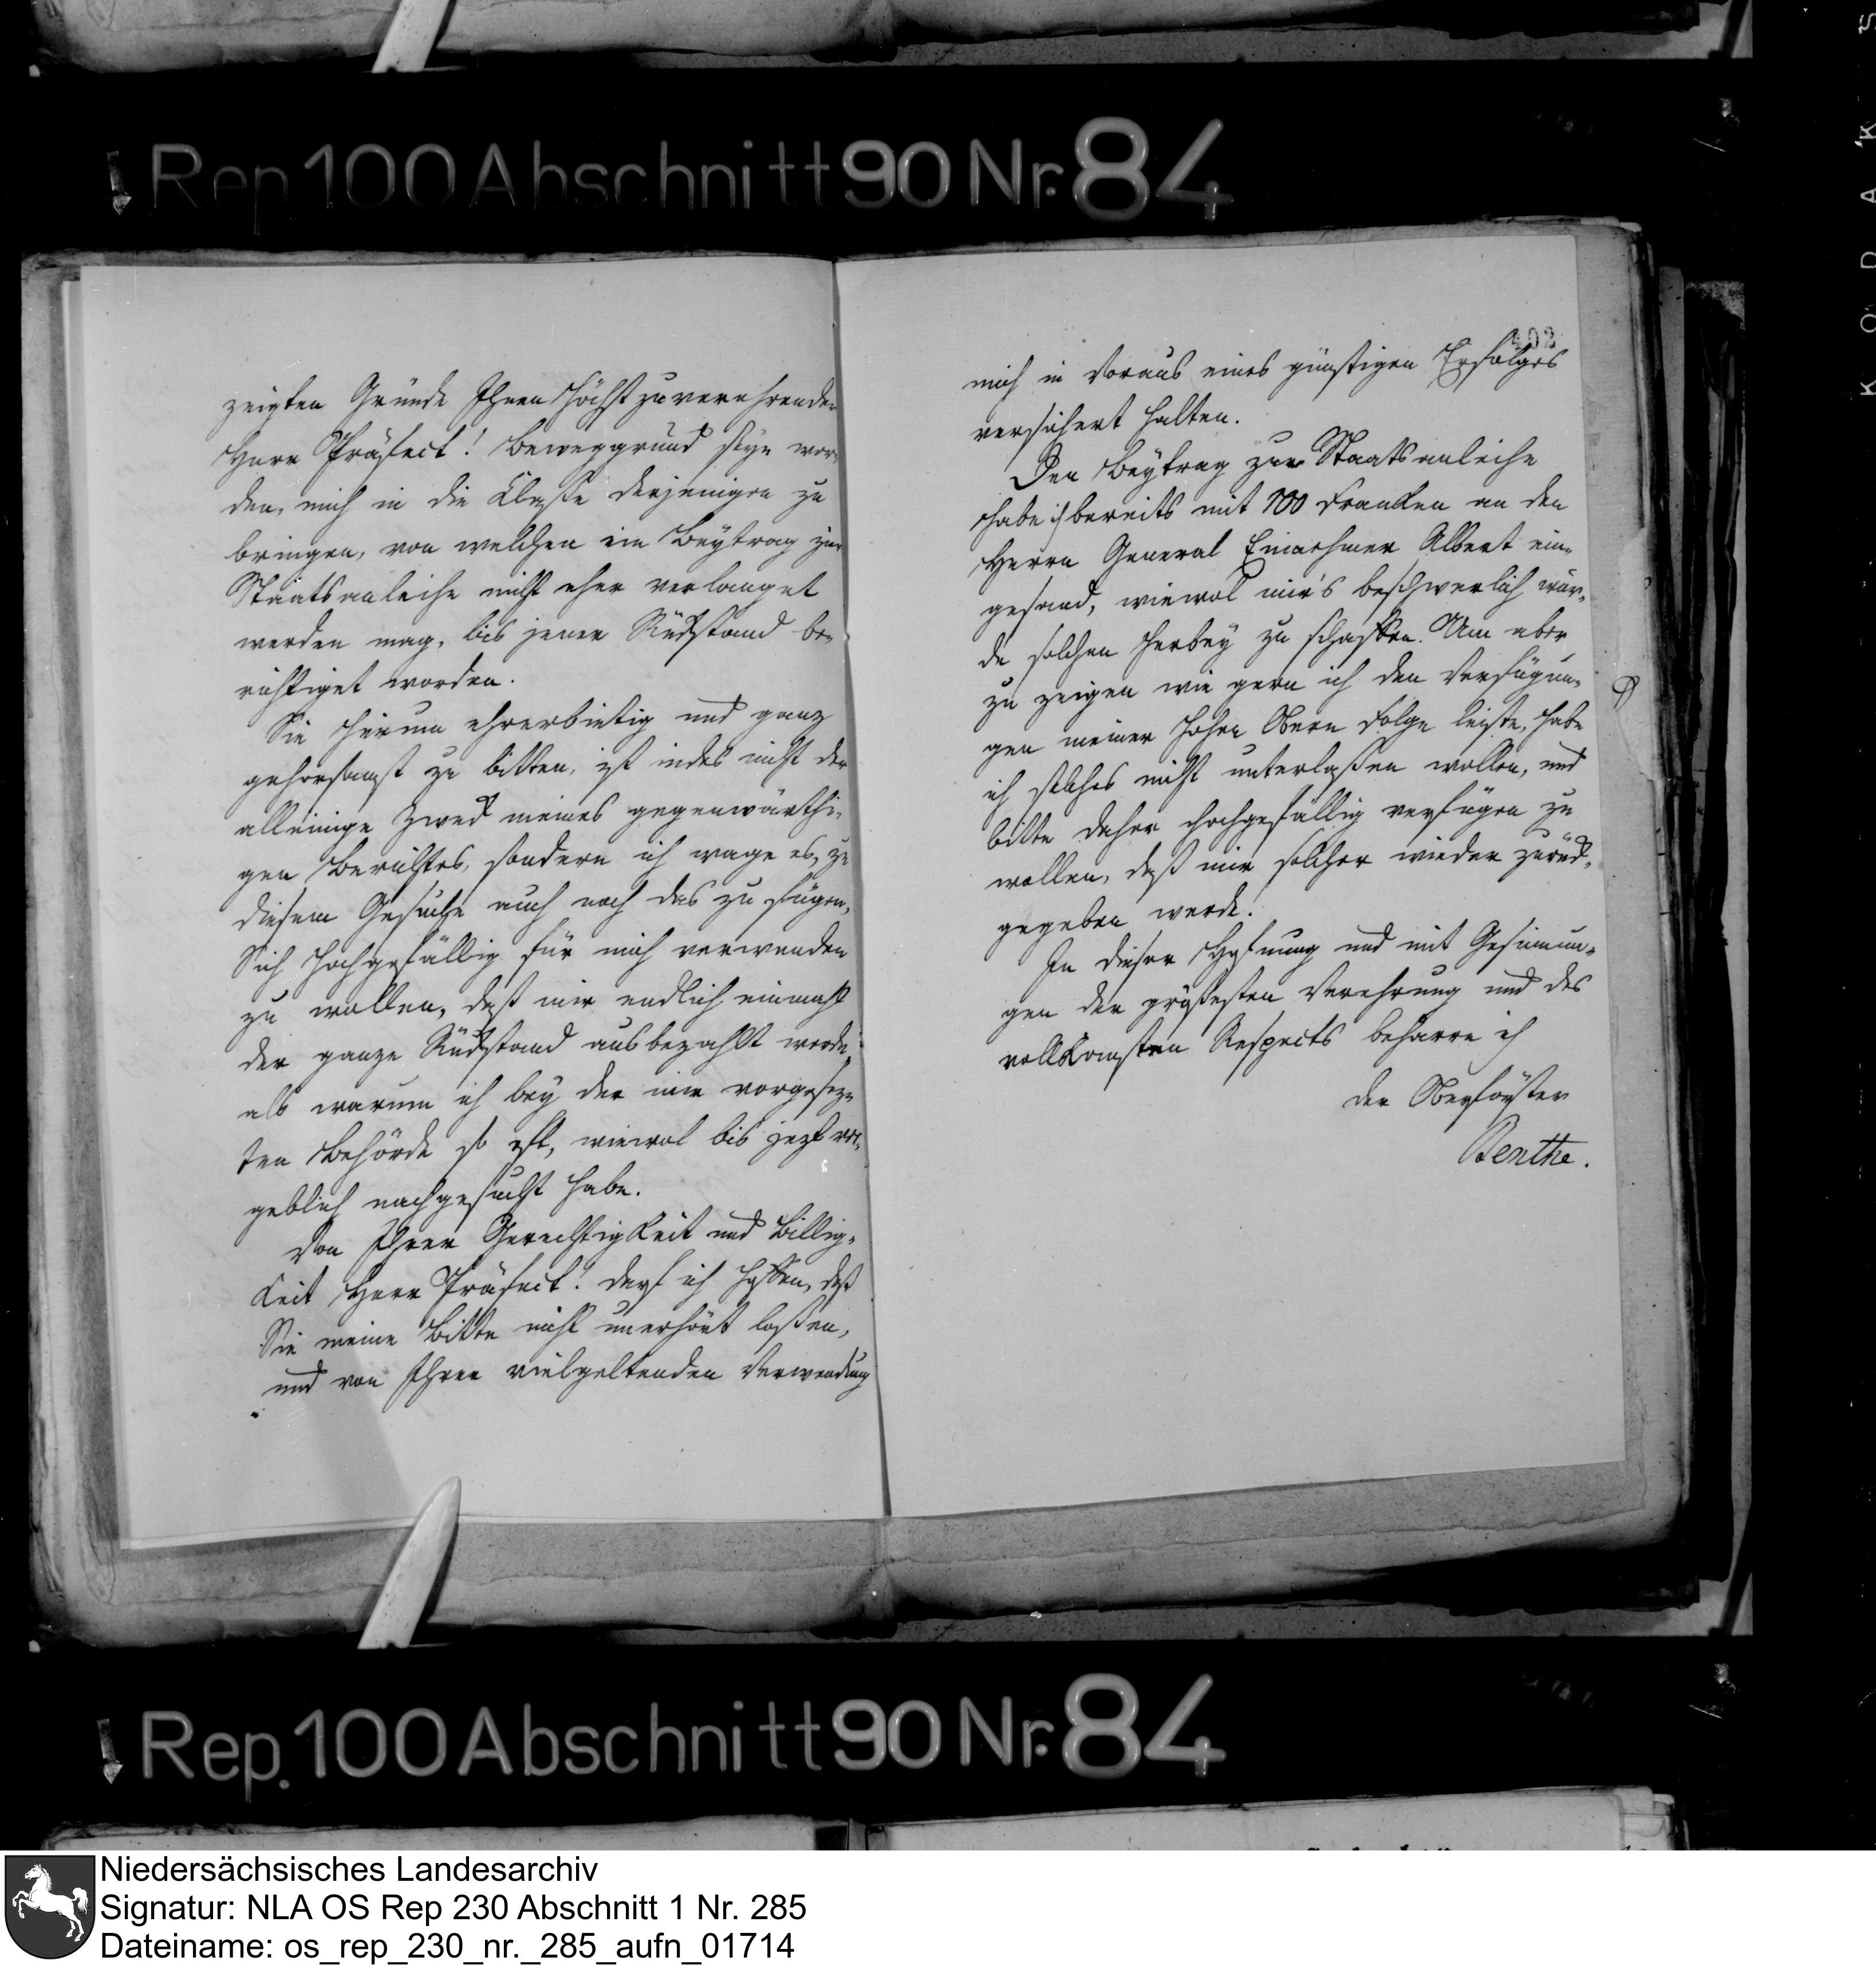 Rep 100 Abschnitt 90 Nr. 84
zeigten Gründe Ihnen Höchstzuverehrender
Herr Präfect! Beweggrund seyn wer-
den, mich in die Claße derjenigen zu
bringen, von welchen ein Beytrag zur
Staatsanleihe nicht eher verlanget
werden mag, bis jener Rückstand be-
richtiget worden.
Sie hierum ehrerbietig und ganz
gehorsamst zu bitten, ist indes nicht der
alleinige Zweck meines gegenwärthi-
gen Berichtes, sondern ich wage es, zu
diesem Gesuche auch noch das zu fügen,
Sich hochgefällig für mich verwenden
zu wollen, daß mir endlich einmahl
der ganze Rückstand ausbezahlt werde,
als warum ich bey der mir vorgesez-
ten Behörde so oft, wiewol bis jezt ver-
geblich nachgesucht habe.
Von Ihrer Gerechtigkeit und Billig-
keit Herr Präfect! darf ich hoffen, daß
Sie meine Bitte nicht unerhört laßen,
und von Ihrer vielgeltenden Verwendung
mich in Voraus eines günstigen Erfolges
versichert halten.
Den Beytrag zur Staatsanleihe
habe ich bereits mit 100 Franken an den
Herrn General Einnehmer Albert ein-
gesand, wiewol mir's beschwerlich wur-
de solchen herbey zu schaffen. Um aber
zu zeigen wie gern ich den Verfügun-
gen meiner hohen Obern Folge leiste, habe
ich solches nicht unterlaßen wollen, und
bitte daher hochgefällig verfügen zu
wollen, daß mir solcher wieder zurück-
gegeben werde.
In dieser Hofnung und mit Gesinnun-
gen der größesten Verehrung und des
vollkomsten Respects beharre ich
der Oberförster
Benthe.
Rep. 100 Abschnitt 90 Nr. 84
KODAK S
Niedersächsisches Landesarchiv
Signatur: NLA OS Rep 230 Abschnitt 1 Nr. 285
Dateiname: os_rep_230_nr._285_aufn_01714